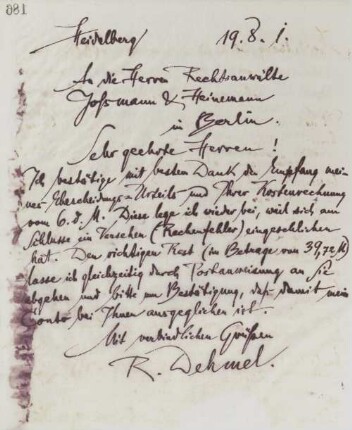 881
Heidelberg 19. 8. 1.
An die Herren Rechtsanwälte
Joſsmann & Heinemann
in Berlin.
Sehr geehrte Herren!
Ich bestätige mit bestem Dank den Empfang mei-
nes Ehescheidungs-Urteils und Ihrer Kostenrechnung
vom 6. d. M. Diese lege ich wieder bei, weil sich am
Schlusse ein Versehen (Rechenfehler) eingeschlichen
hat. Den richtigen Rest (im Betrage von 39,72 M)
lasse ich gleichzeitig durch Postanweisung an Sie
abgehen und bitte um Bestätigung, daſs damit mein
Conto bei Ihnen ausgeglichen ist.
Mit verbindlichen Grüßen
R. Dehmel.